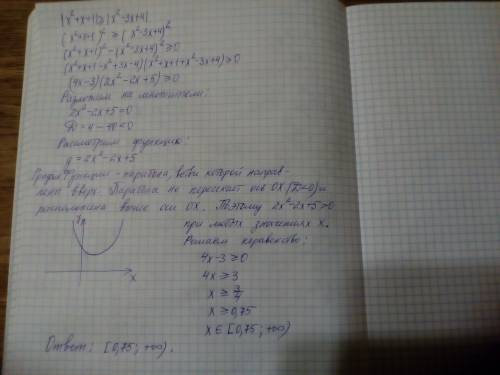 |x²+x+1|≥|x²-3x+4|
(x²+x+1)² ≥ (x²-3x+4)²
(x²+x+1)²-(x²-3x+4)²≥0
(x²+x+1-x²+3x-4)(x²+x+1+x²-3x+4)≥0
(4x-3)(2x²-2x+5)≥0
Разложим на множители:
2x²-2x+5=0
D=4-40<0
Рассмотрим функцию:
y=2x²-2x+5
График функции - парабола, ветви которой направ-
лены вверх. Парабола не пересекает ось OX (D<0) и
расположена выше оси OX. Поэтому 2x²-2x+5>0
при любых значениях x.
Решаем неравенство:
4x-3≥0
4x≥3
x≥3/4
x≥0,75
x∈[0,75; +∞)
y
x
Ответ: [0,75; +∞).